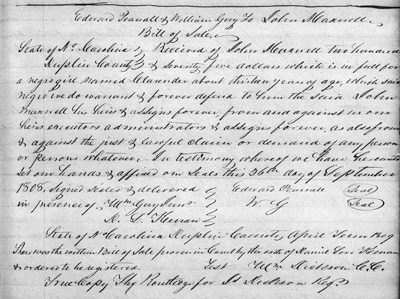 Edward Pennall & William Guy To John Maxwell
Bill of Sale
State of No Carolina } Recieved of John Maxwell two hundred
Duplin County } & Seventy five dollars which is in full for
a negro girl named about thirteen years of age, which said
negro we do warrant & forever defend to him the said John
Maxwell his heirs & assigns forever, from and against us our
heirs executors administrators & assigns forever, as also from
& against the just & lawful claim or demand of any person
or persons whatever. In testimony whereof we have hereunto
set our hands & affixed our seals this 26th day of September
1808. Signed Sealed & delivered } Edward Pennall (Seal)
in presence of Wm Guy Junr } W G (Seal)
State of No Carolina Duplin County April Term 1809
Then was the within Bill of Sale proven in Court by the oath of
& ordered to be registered. Test Wm Dickson C.C.
True Copy Thy Routledge for Dickson Regr